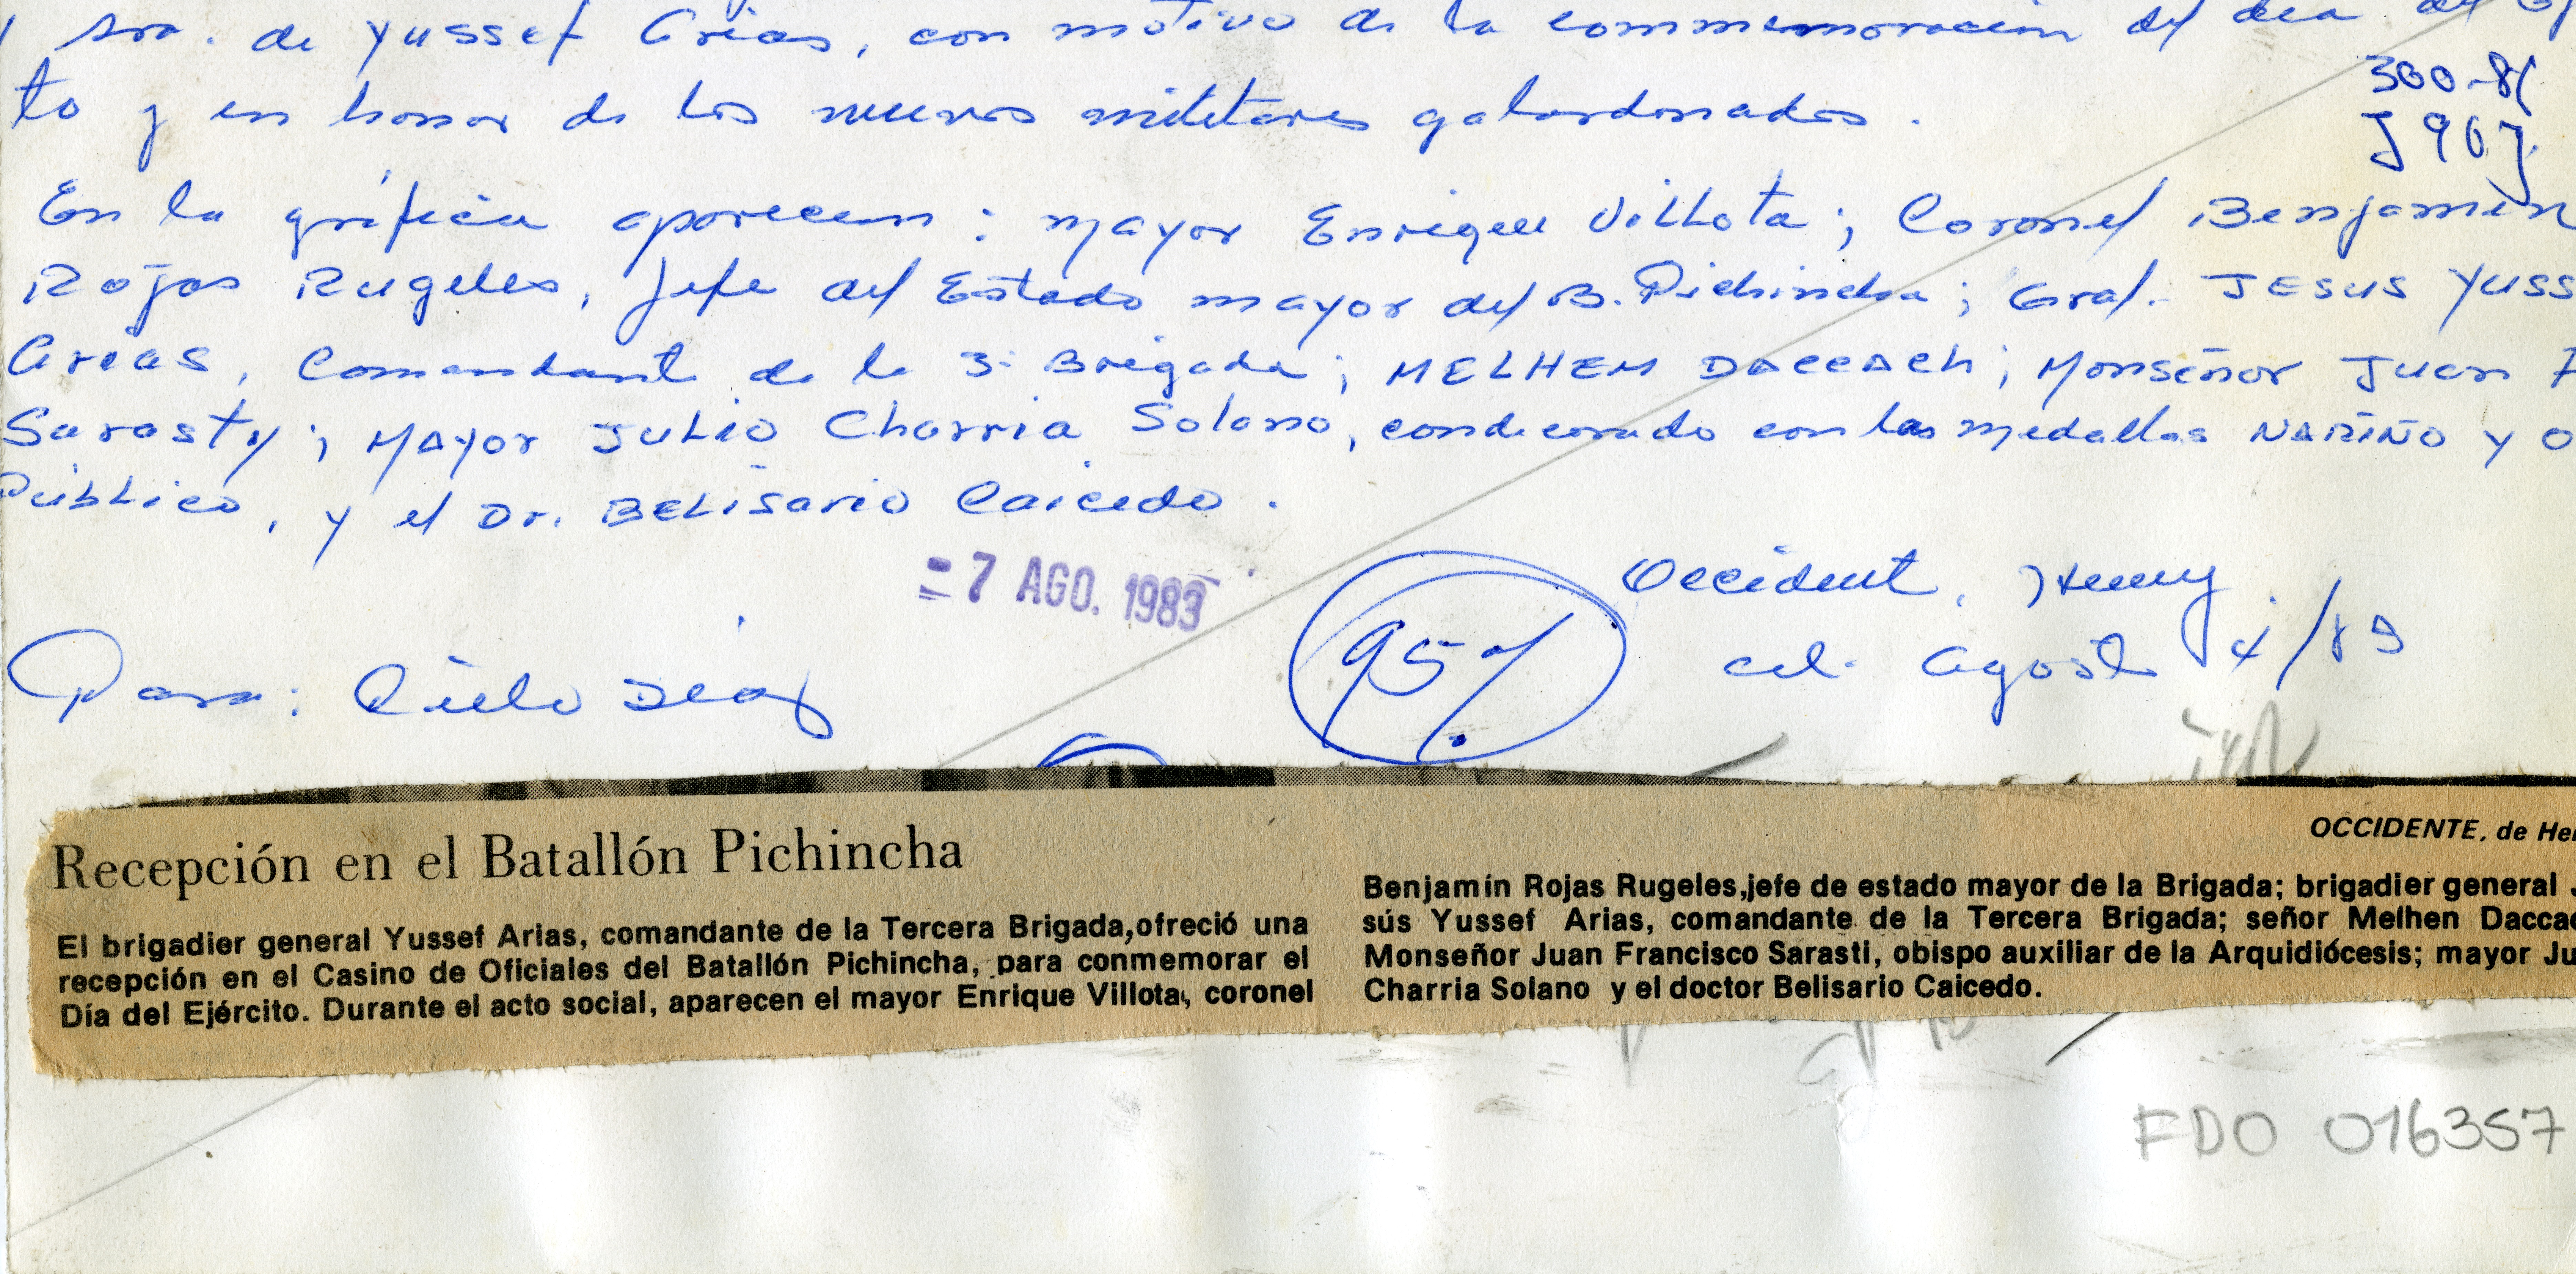 sra. de Yussef Arias, con motivo de la conmemoracion del dia del
to y en honor de los nuevos militares galardonados.
300-81
J907
En la gráfica aparecen: Mayor Enrique Villota; Coronel Benjamin
Rojas Rugeles, Jefe del Estado mayor del B. Pichincha; Gral. JESUS YUSS
Arias, Comandante de la 3ª Brigada; MELHEM DACCACH; Monseñor Juan F
Sarasty; MAYOR JULIO Charria Solano, condecorado con las medallas NARIÑO y O
Público, y el Dr. BELISARIO Caicedo.
= 7 AGO. 1983
Occidente, Henry
95%
cal. Agosto 4/83
Para: Cielo Diaz
Recepción en el Batallón Pichincha
El brigadier general Yussef Arias, comandante de la Tercera Brigada, ofreció una
recepción en el Casino de Oficiales del Batallón Pichincha, para conmemorar el
Día del Ejército. Durante el acto social, aparecen el mayor Enrique Villota, coronel
OCCIDENTE, de He
Benjamín Rojas Rugeles, jefe de estado mayor de la Brigada; brigadier general J
sús Yussef Arias, comandante de la Tercera Brigada; señor Melhen Dacca
Monseñor Juan Francisco Sarasti, obispo auxiliar de la Arquidiócesis; mayor Ju
Charria Solano y el doctor Belisario Caicedo.
FDO 016357